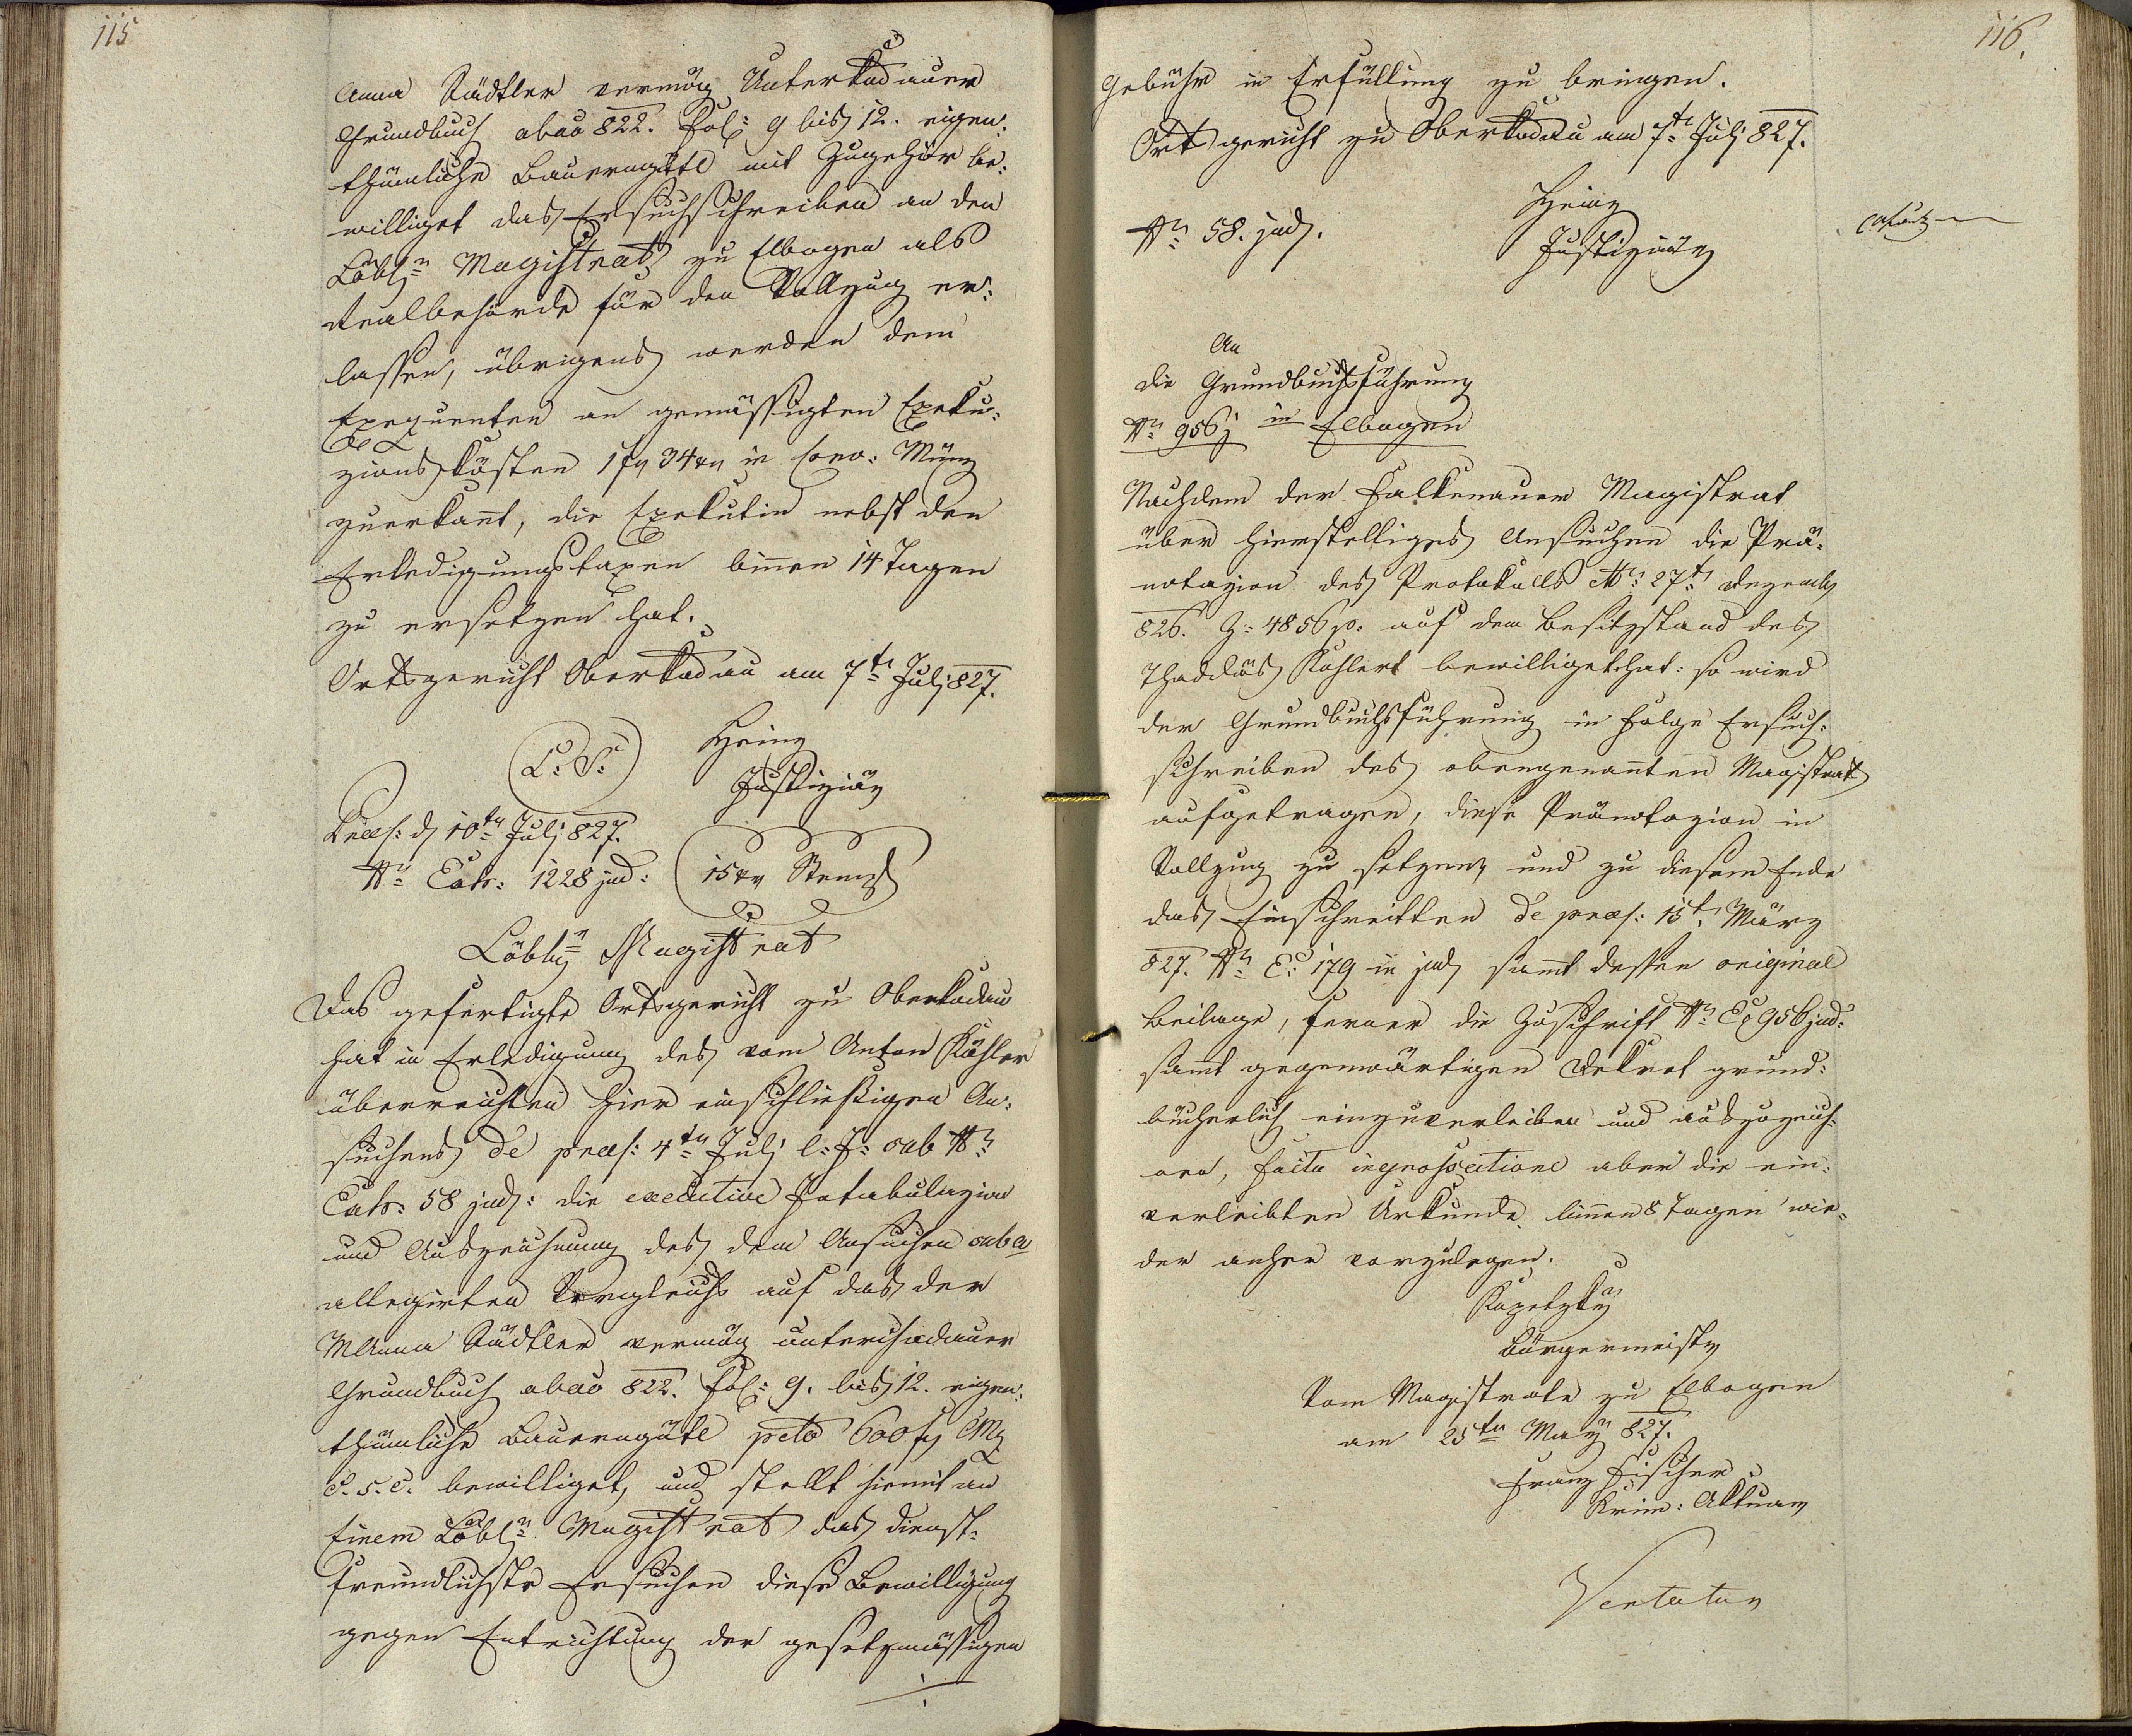 115
Anna Städtler vermög Unterkodauer
Grundbuch abao 822. Fol: 9 bis 12. eigen:
thümliche Bauerngütl mit Zugehör be:
williget das Ersuchschreiben an den
Löbl: Magistrat zu Elbogen als
Realbehörde für den Vollzug er:
lassen, übrigens werden dem
Exequenten an gemässigten Exeku:
zionskösten 1 f 34 xr in Conv: Münz
zuerkant, die Exekutin nebst den
Erledigungstaxen binnen 14 Tagen
zu ersetzen hat.
Ortsgericht Oberkodau am 7t Juli 827.
L: S:
Heinz
Justiziär
Præs: d 10tn Juli 827.
Nr: Exh: 1228 jud:
15 xr Stempl
Löbl: Magistrat
Das gefertigte Ortsgericht zu Oberkodau
hat in Erledigung des vom Anton Köhler
überreichten hier einschließigen An:
suchens de præs: 4tn Juli l: J: sub Nr:
Exh: 58 jud: die executive Intabulazion
und Auszeichnung des dem Ansuchen sub A
allegirten Vergleichs auf das der
M Anna Städtler vermög unterchodauer
Grundbuch abao 822. Fol: 9. bis 12. eigen:
thümliche Bauerngütl peto 600 f CMz
c. s. c. bewilliget, und stellt hiemit an
Einem Löbl: Magistrat das dienst:
freundlichste Ersuchen diese Bewilligung
gegen Entrichtung der gesetzmässigen
./.
116.
Gebühr in Erfüllung zu bringen.
Ortsgericht zu Oberkodau am 7t Juli 827.
Nr: 58. jud.
Heinz
Justiziär
An
die Grundbuchsführung
Nr: 956j in Elbogen
Nachdem der Falkenauer Magistrat
über hierstelliges Ansuchen die Prä:
notazion des Protokolls 27t Dezemb
826. Z: 4856 p. auf dem Besitzstand des
Thaddäs Kohlert bewilliget hat: so wird
der Grundbuchsführung in Folge Ersuch:
schreiben des obengenannten Magistrats
aufgetragen, diese Pränotazion in
Vollzug zu setzen, und zu diesem Ende
das Einschreitten de præs: 15t März
827. Nr: E: 179 in jud sammt dessen original
Beilage, ferner die Zuschrift Nr: E: 956 jud:
sammt gegenwärtigen Dekret grund:
bücherlich einzuverleiben und auszuzeich:
nen, facta ingrossatione aber die ein:
verleibten Urkunde binnen 8 Tagen wie:
der anher vorzulegen.
Kopetzky
Bürgermeister
Vom Magistrate zu Elbogen
am 25tn May 827.
Franz Fischer
Krim: Aktuar